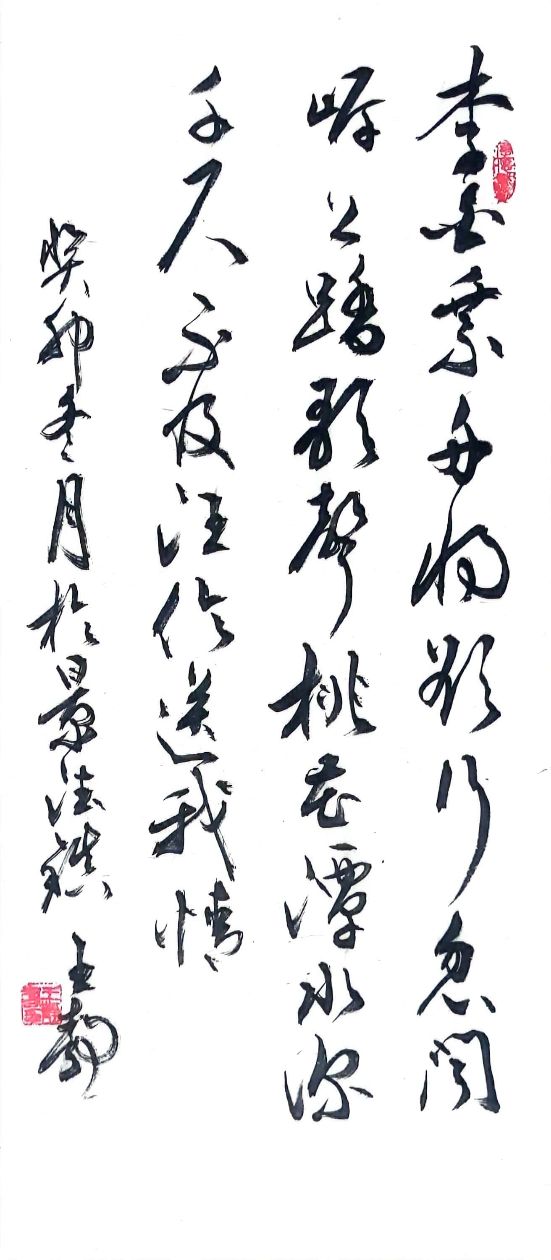 李白乘舟将欲行忽闻
岸上踏歌聲桃花潭水深
千尺不及汪伦送我情
癸卯冬月於景德镇 王